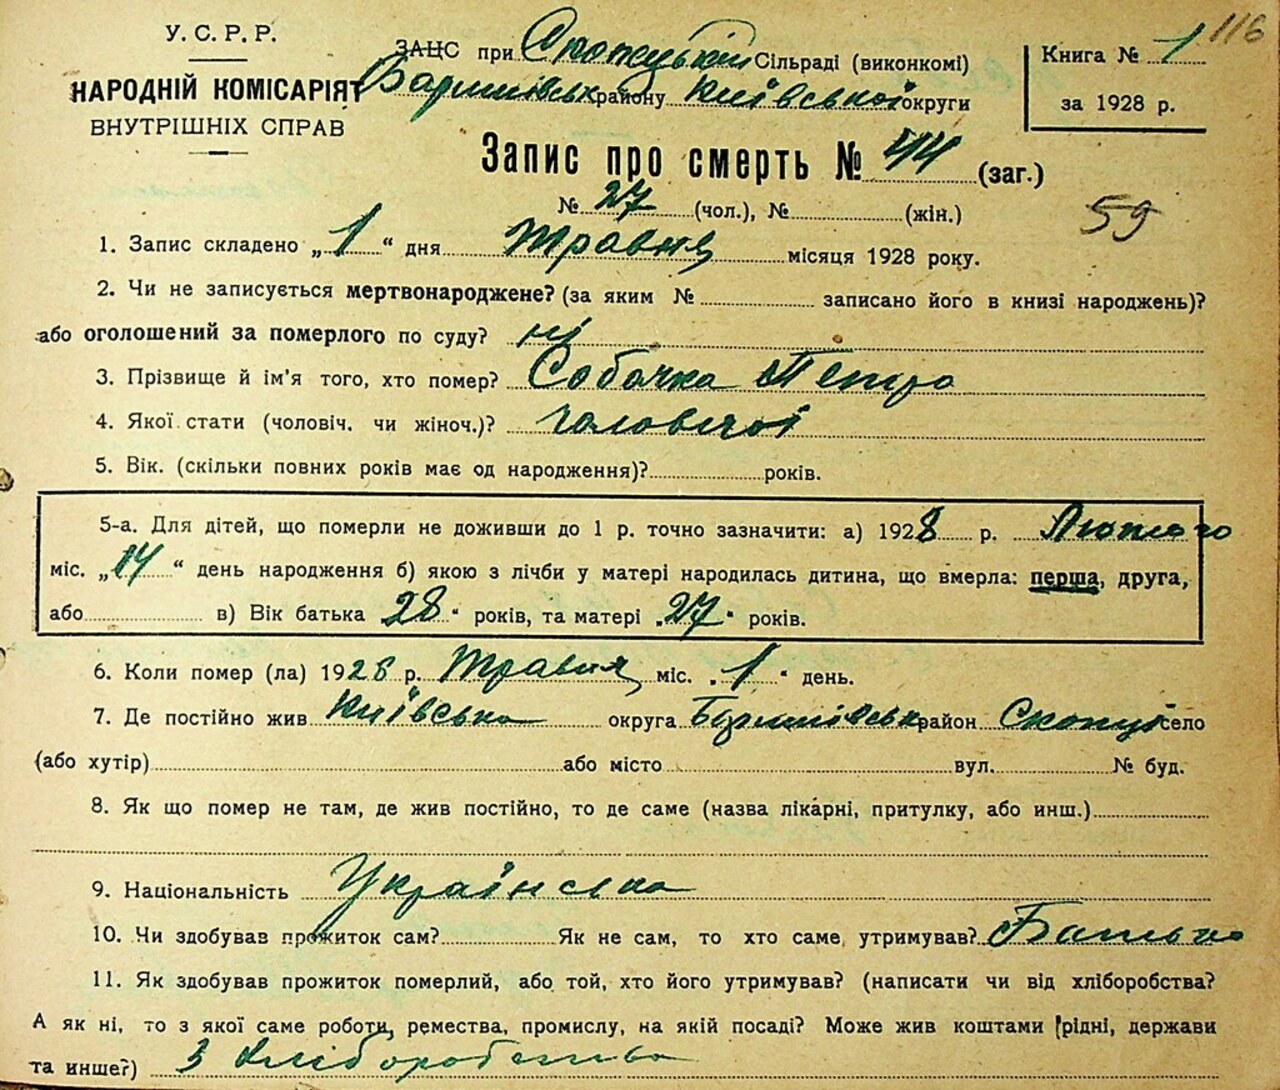 116
У. С. Р. Р.
НАРОДНІЙ КОМІСАРІЯТ
ВНУТРІШНІХ СПРАВ
ЗАЦС при Скопецькій Сільраді (виконкомі)
Баришівськ району Київської округи
Книга № 1
за 1928 р.
Запис про смерть № 44 (заг.)
№ 27 (чол.), № (жін.)
59
1. Запис складено „1“ дня Травня місяця 1928 року.
2. Чи не записується мертвонароджене? (за яким № записано його в книзі народжень)?
або оголошений за померлого по суду? ні
3. Прізвище й ім'я того, хто помер? Собачка Петро
4. Якої статі (чоловіч. чи жіноч.)? чоловічої
5. Вік. (скільки повних років має од народження)? років.
5-а. Для дітей, що померли не доживши до 1 р. точно зазначити: а) 1928 р. Лютого
міс. „14“ день народження б) якою з лічби у матері народилась дитина, що вмерла: перша, друга,
або в) Вік батька 28 “ років, та матері „27“ років.
6. Коли помер (ла) 1928 р. Травня міс. „1“ день.
7. Де постійно жив Київська округа Баришівськ район Скопці село
(або хутір) або місто вул. № буд.
8. Як що помер не там, де жив постійно, то де саме (назва лікарні, притулку, або инш.)
9. Національність Українська
10. Чи здобував прожиток сам? Як не сам, то хто саме утримував? Батько
11. Як здобував прожиток померлий, або той, хто його утримував? (написати чи від хліборобства?
А як ні, то з якої саме роботи, ремества, промислу, на якій посаді? Може жив коштами рідні, держави
та инше?) З хліборобства